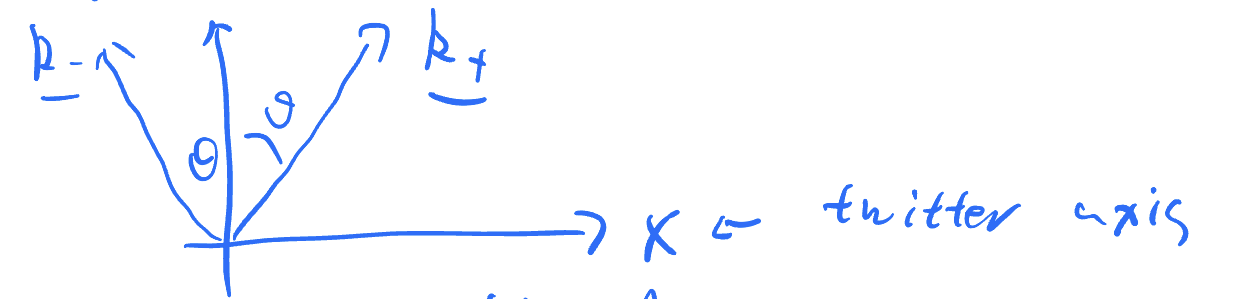 k₋ k₊
θ θ
x ← twitter axis